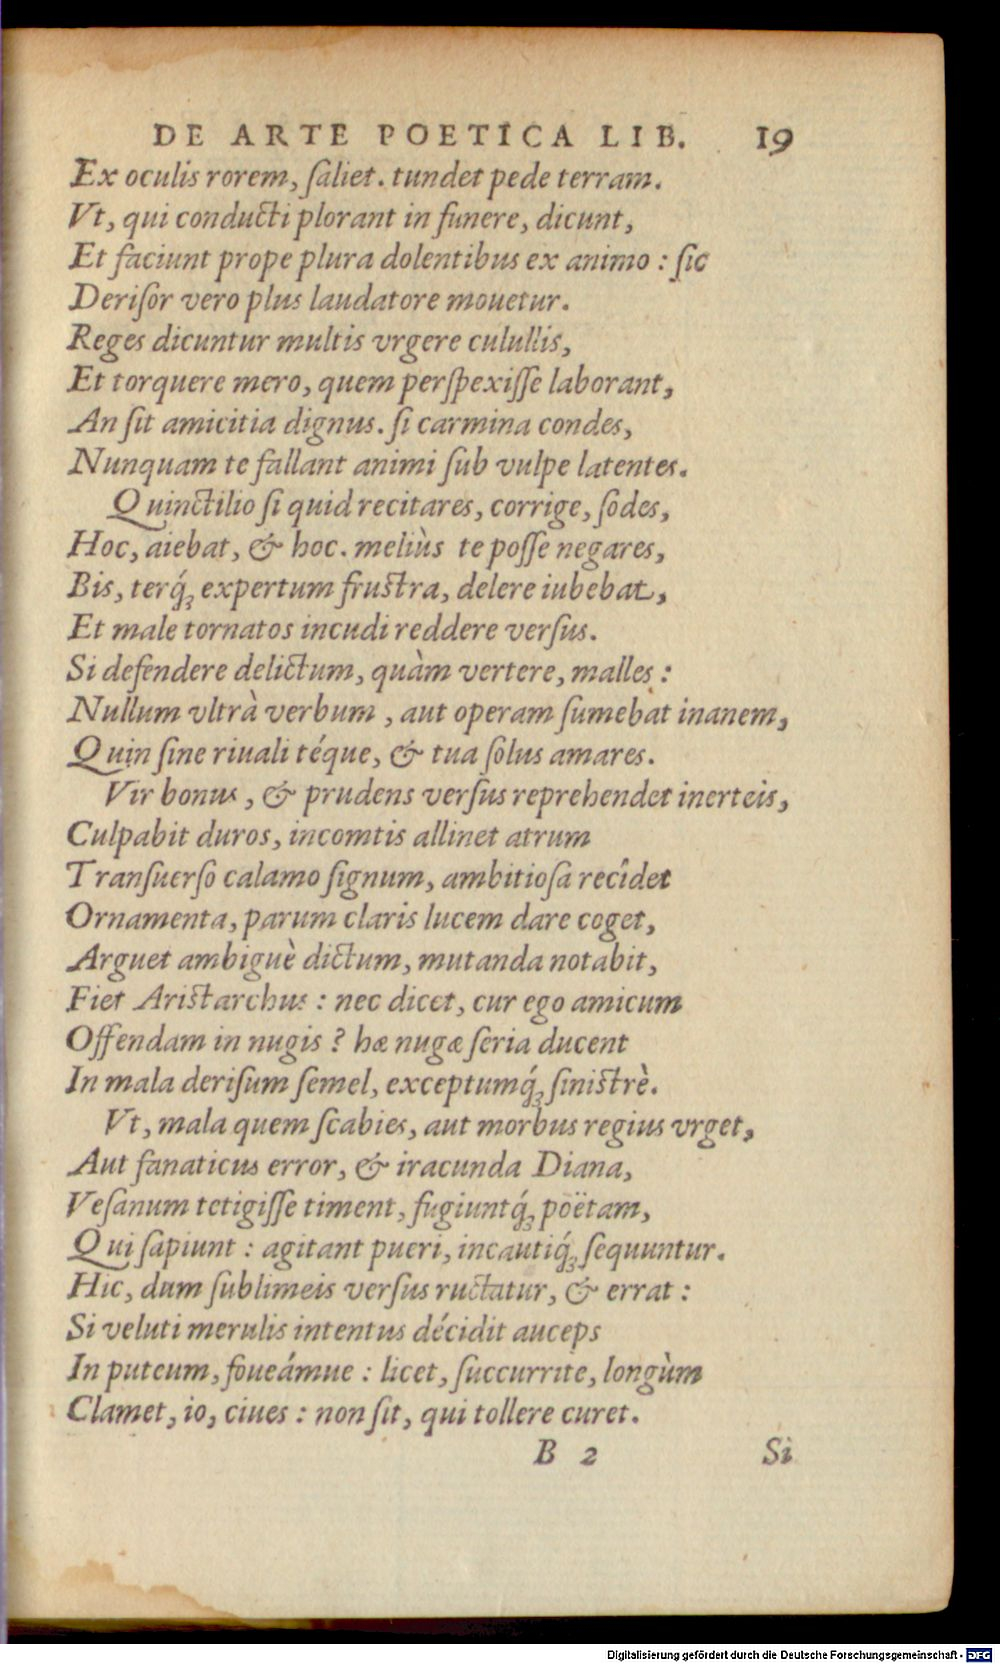 DE ARTE POETICA LIB. 19
Ex oculis rorem, ſaliet. tundet pede terram.
Vt, qui conducti plorant in funere, dicunt,
Et faciunt prope plura dolentibus ex animo : ſic
Deriſor vero plus laudatore mouetur.
Reges dicuntur multis vrgere culullis,
Et torquere mero, quem perſpexiſſe laborant,
An ſit amicitia dignus. ſi carmina condes,
Nunquam te fallant animi ſub vulpe latentes.
Quinctilio ſi quid recitares, corrige, ſodes,
Hoc, aiebat, & hoc. meliùs te poſſe negares,
Bis, terq́ꝫ expertum fruſtra, delere iubebat,
Et male tornatos incudi reddere verſus.
Si defendere delictum, quàm vertere, malles :
Nullum vltrà verbum , aut operam ſumebat inanem,
Quin ſine riuali téque, & tua ſolus amares.
Vir bonus , & prudens verſus reprehendet inerteis,
Culpabit duros, incomtis allinet atrum
Tranſuerſo calamo ſignum, ambitioſa recîdet
Ornamenta, parum claris lucem dare coget,
Arguet ambiguè dictum, mutanda notabit,
Fiet Ariſtarchus : nec dicet, cur ego amicum
Offendam in nugis ? hæ nugæ ſeria ducent
In mala deriſum ſemel, exceptumq́ꝫ ſiniſtrè.
Vt, mala quem ſcabies, aut morbus regius vrget,
Aut fanaticus error, & iracunda Diana,
Veſanum tetigiſſe timent, fugiuntq́ꝫ poëtam,
Qui ſapiunt : agitant pueri, incautiq́ꝫ ſequuntur.
Hic, dum ſublimeis verſus ructatur, & errat :
Si veluti merulis intentus décidit auceps
In puteum, foueámue : licet, ſuccurrite, longùm
Clamet, io, ciues : non ſit, qui tollere curet.
B 2 Si
Digitalisierung gefördert durch die Deutsche Forschungsgemeinschaft - DFG